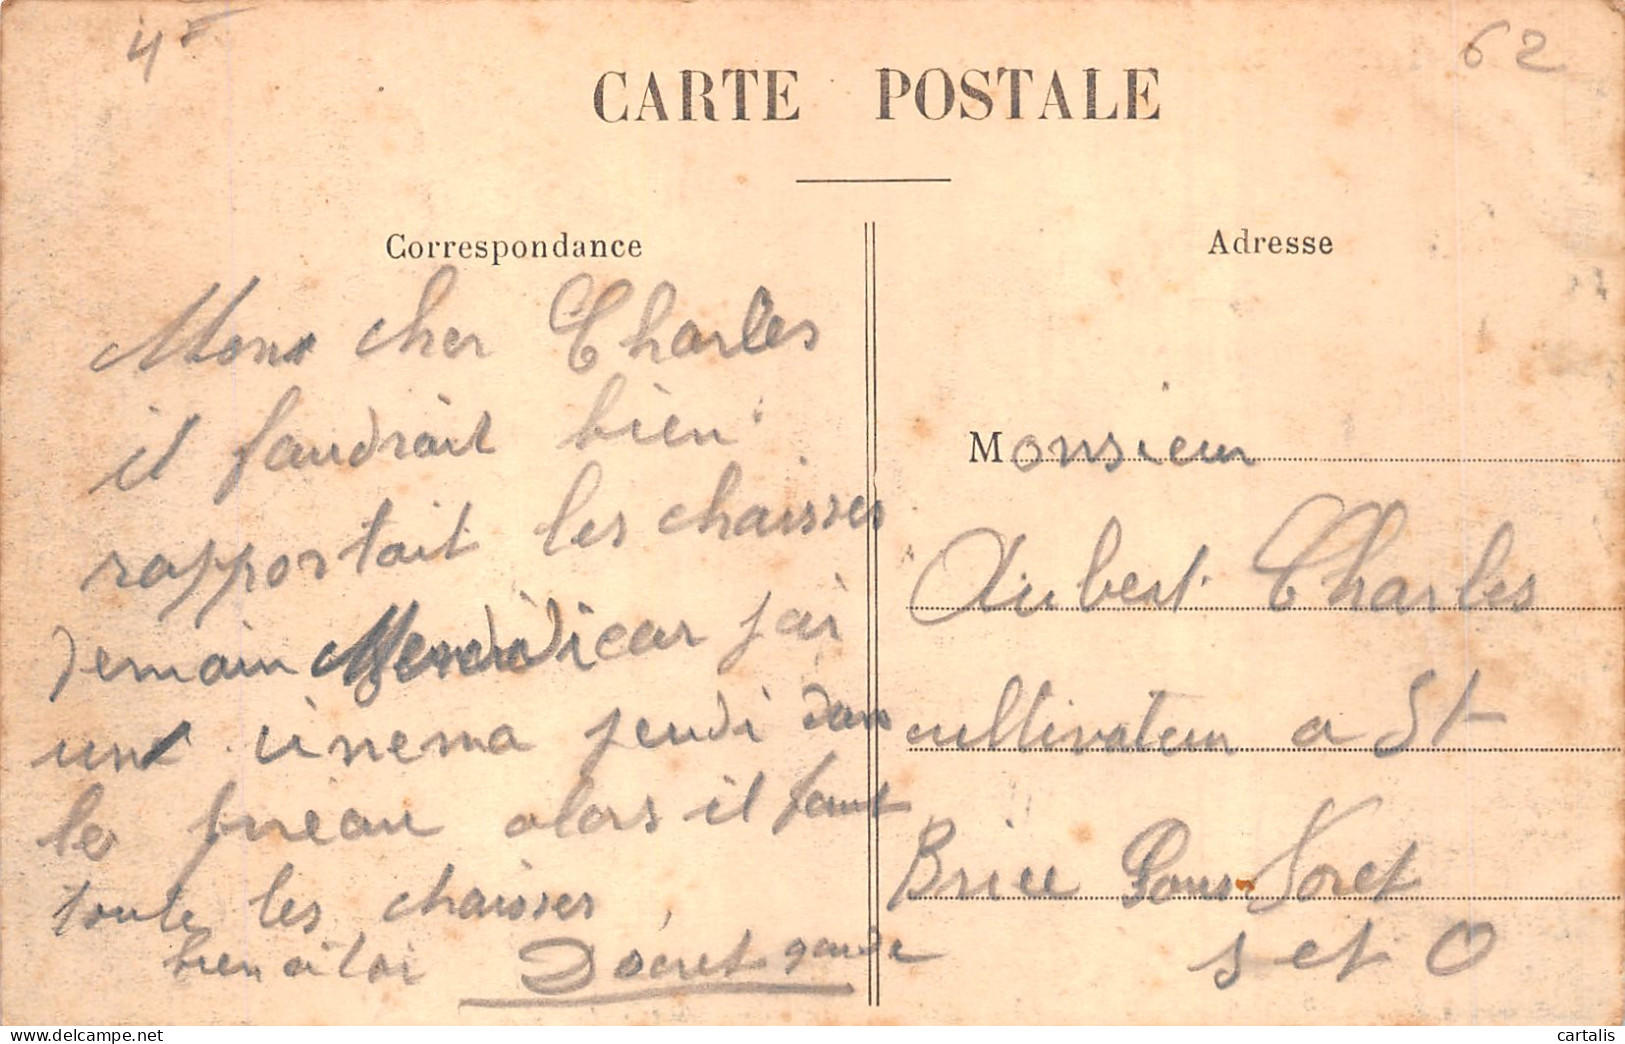 4F
62
CARTE POSTALE
Correspondance
Mon cher Charles
il faudrait bien
rapportait les chaisses
demain Mercredi car jai
un cinema jeudi dans
le pureau alors il faut
toute les chaisses
bien a toi
garde
Adresse
Monsieur
Aubert Charles
cultivateur a St
Brice Sous Foret
S et O
cartalis
www.delcampe.net